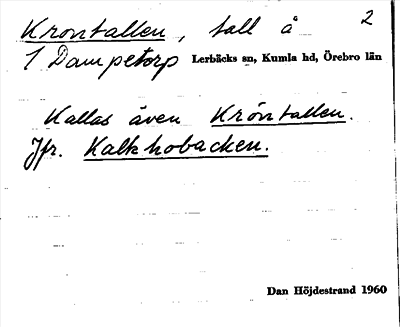 Krontallen, tall å 2
1 Dampetorp Lerbäcks sn, Kumla hd, Örebro län
Kallas även Kröntallen.
Jfr. Kalkhobacken.
Dan Höjdestrand 1960